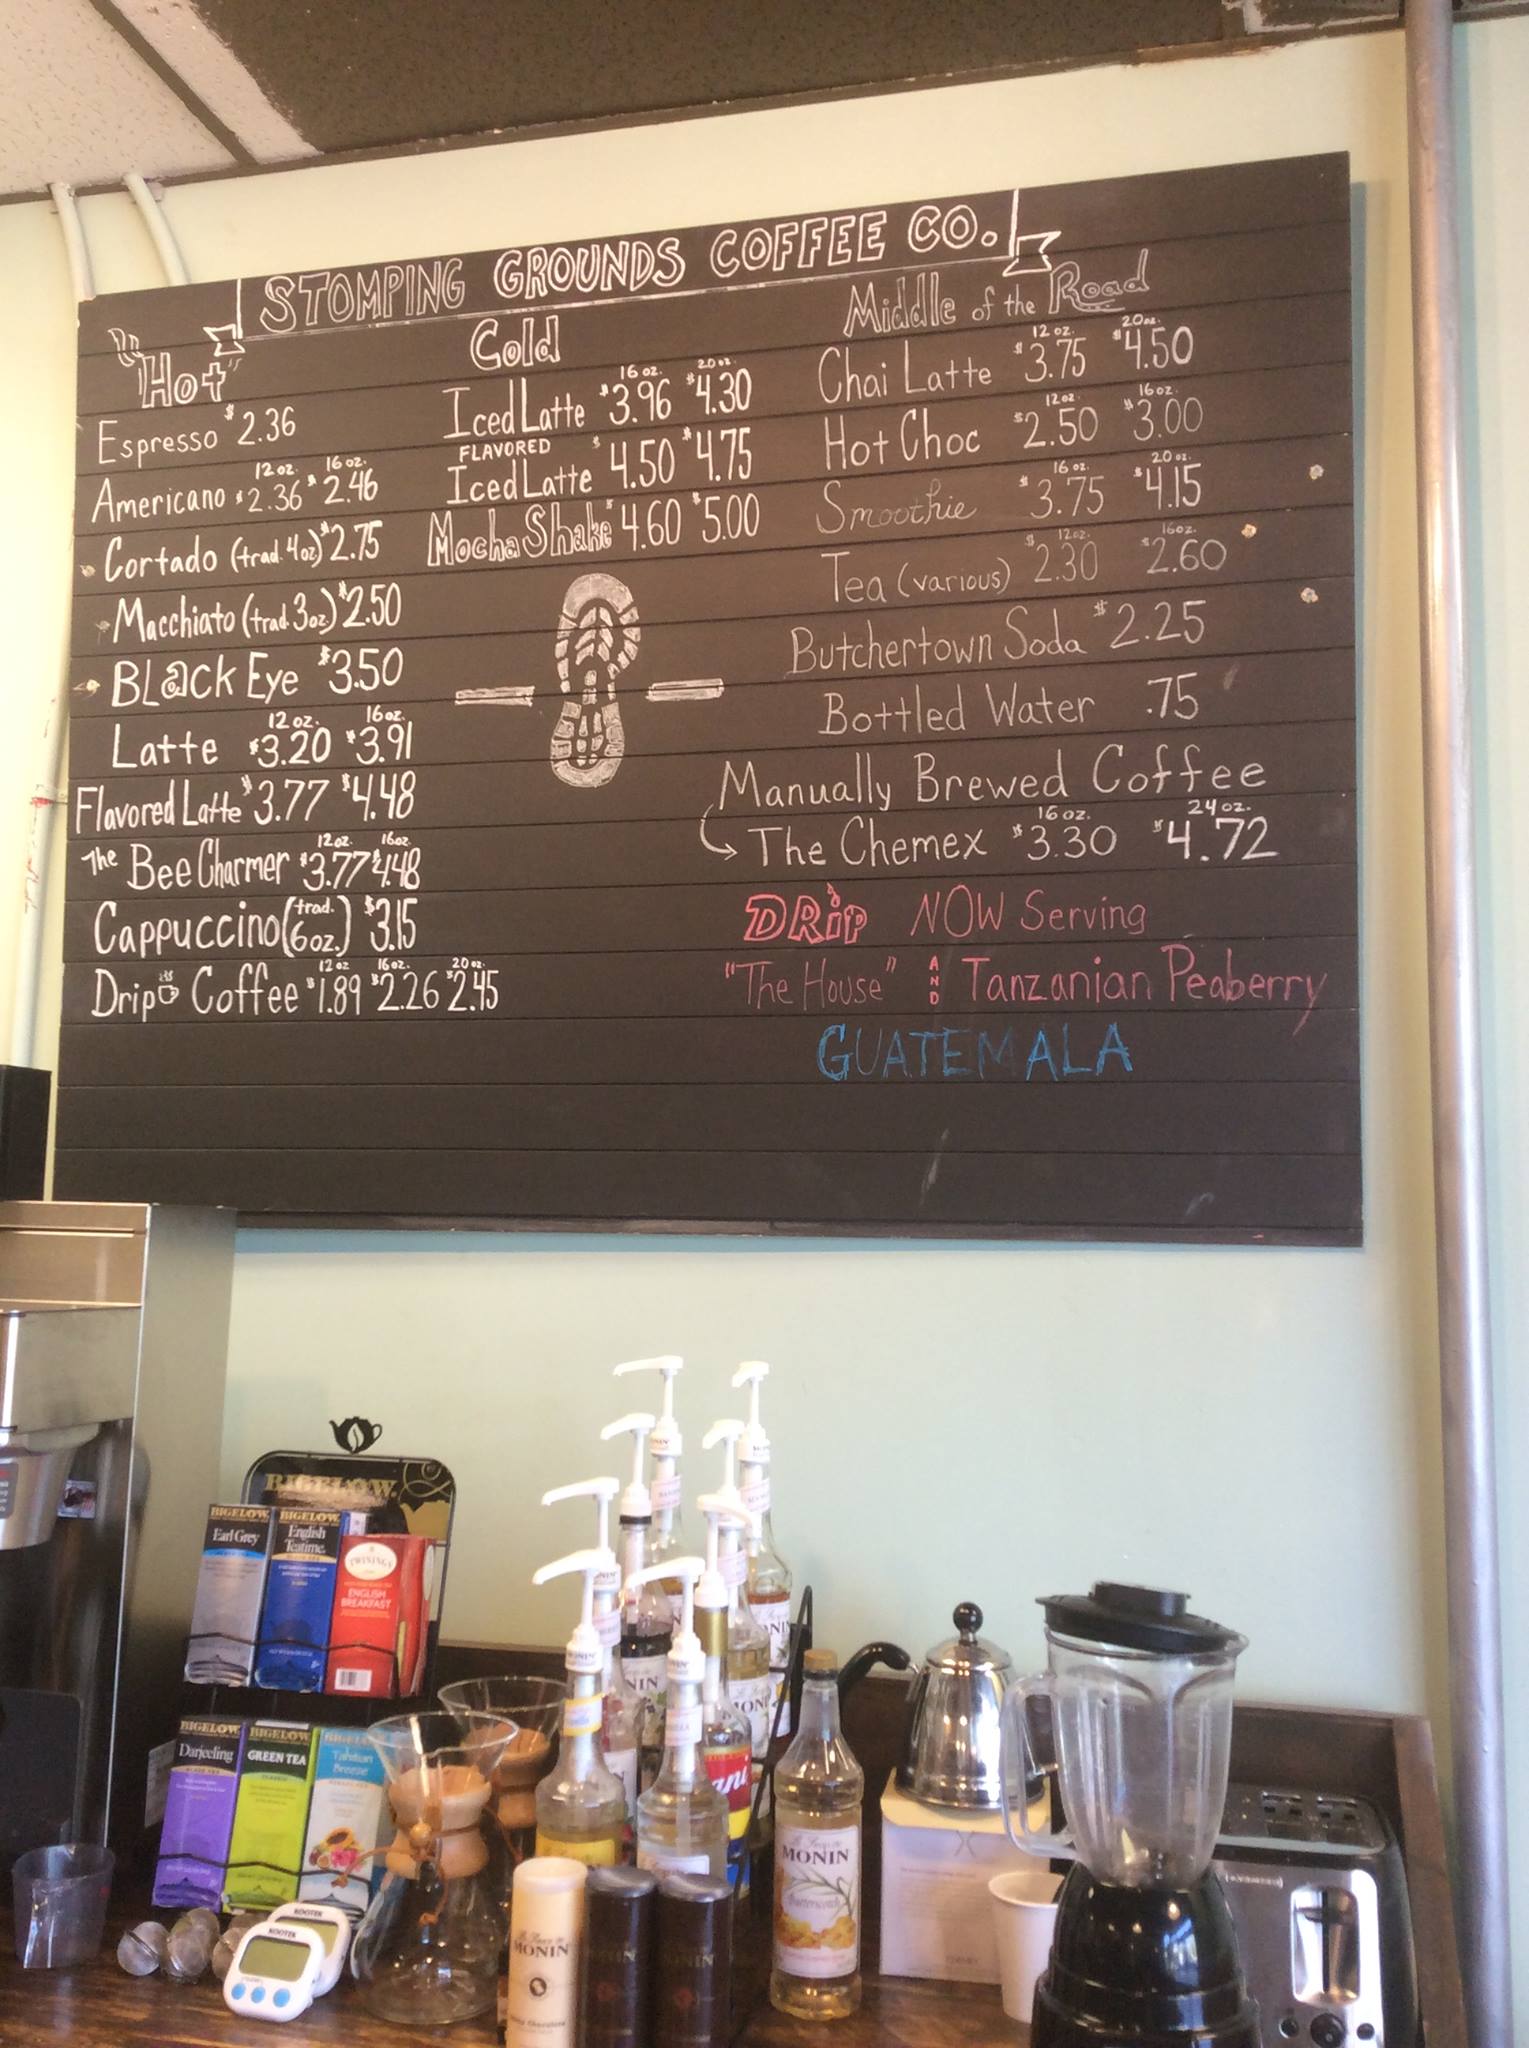 STOMPING GROUNDS COFFEE CO.
Hot
Espresso $2.36
12 oz. 16 oz.
Americano $2.36 $2.46
Cortado (trad. 4oz) $2.75
Macchiato (trad. 3oz.) $2.50
BL@ck Eye $3.50
12 oz. 16 oz.
Latte $3.20 $3.91
Flavored Latte $3.77 $4.48
12oz. 16oz.
The Bee Charmer $3.77 $4.48
Cappuccino (trad. 6oz.) $3.15
12 oz 16 oz. 20 oz.
Drip Coffee $1.89 $2.26 $2.45
Cold
16 oz. 20 oz.
Iced Latte $3.96 $4.30
FLAVORED
Iced Latte $4.50 $4.75
Mocha Shake $4.60 $5.00
Middle of the Road
12 oz. 20oz.
Chai Latte $3.75 $4.50
12oz. 16oz.
Hot Choc $2.50 $3.00
16 oz. 20 oz.
Smoothie $3.75 $4.15
12oz. 16oz.
Tea (various) $2.30 $2.60
Butchertown Soda $2.25
Bottled Water .75
Manually Brewed Coffee
16 oz. 24 oz.
The Chemex $3.30 $4.72
DRiP NOW Serving
"The House" AND Tanzanian Peaberry
GUATEMALA
BIGELOW.
BIGELOW
Earl Grey
BIGELOW
English
Teatime
TWININGS
ENGLISH
BREAKFAST
BIGELOW
Darjeeling
BIGELOW
GREEN TEA
BIGELOW
Tahitian
Breeze
KOOTEK
KOOTEK
MONIN
MONIN
butterscotch